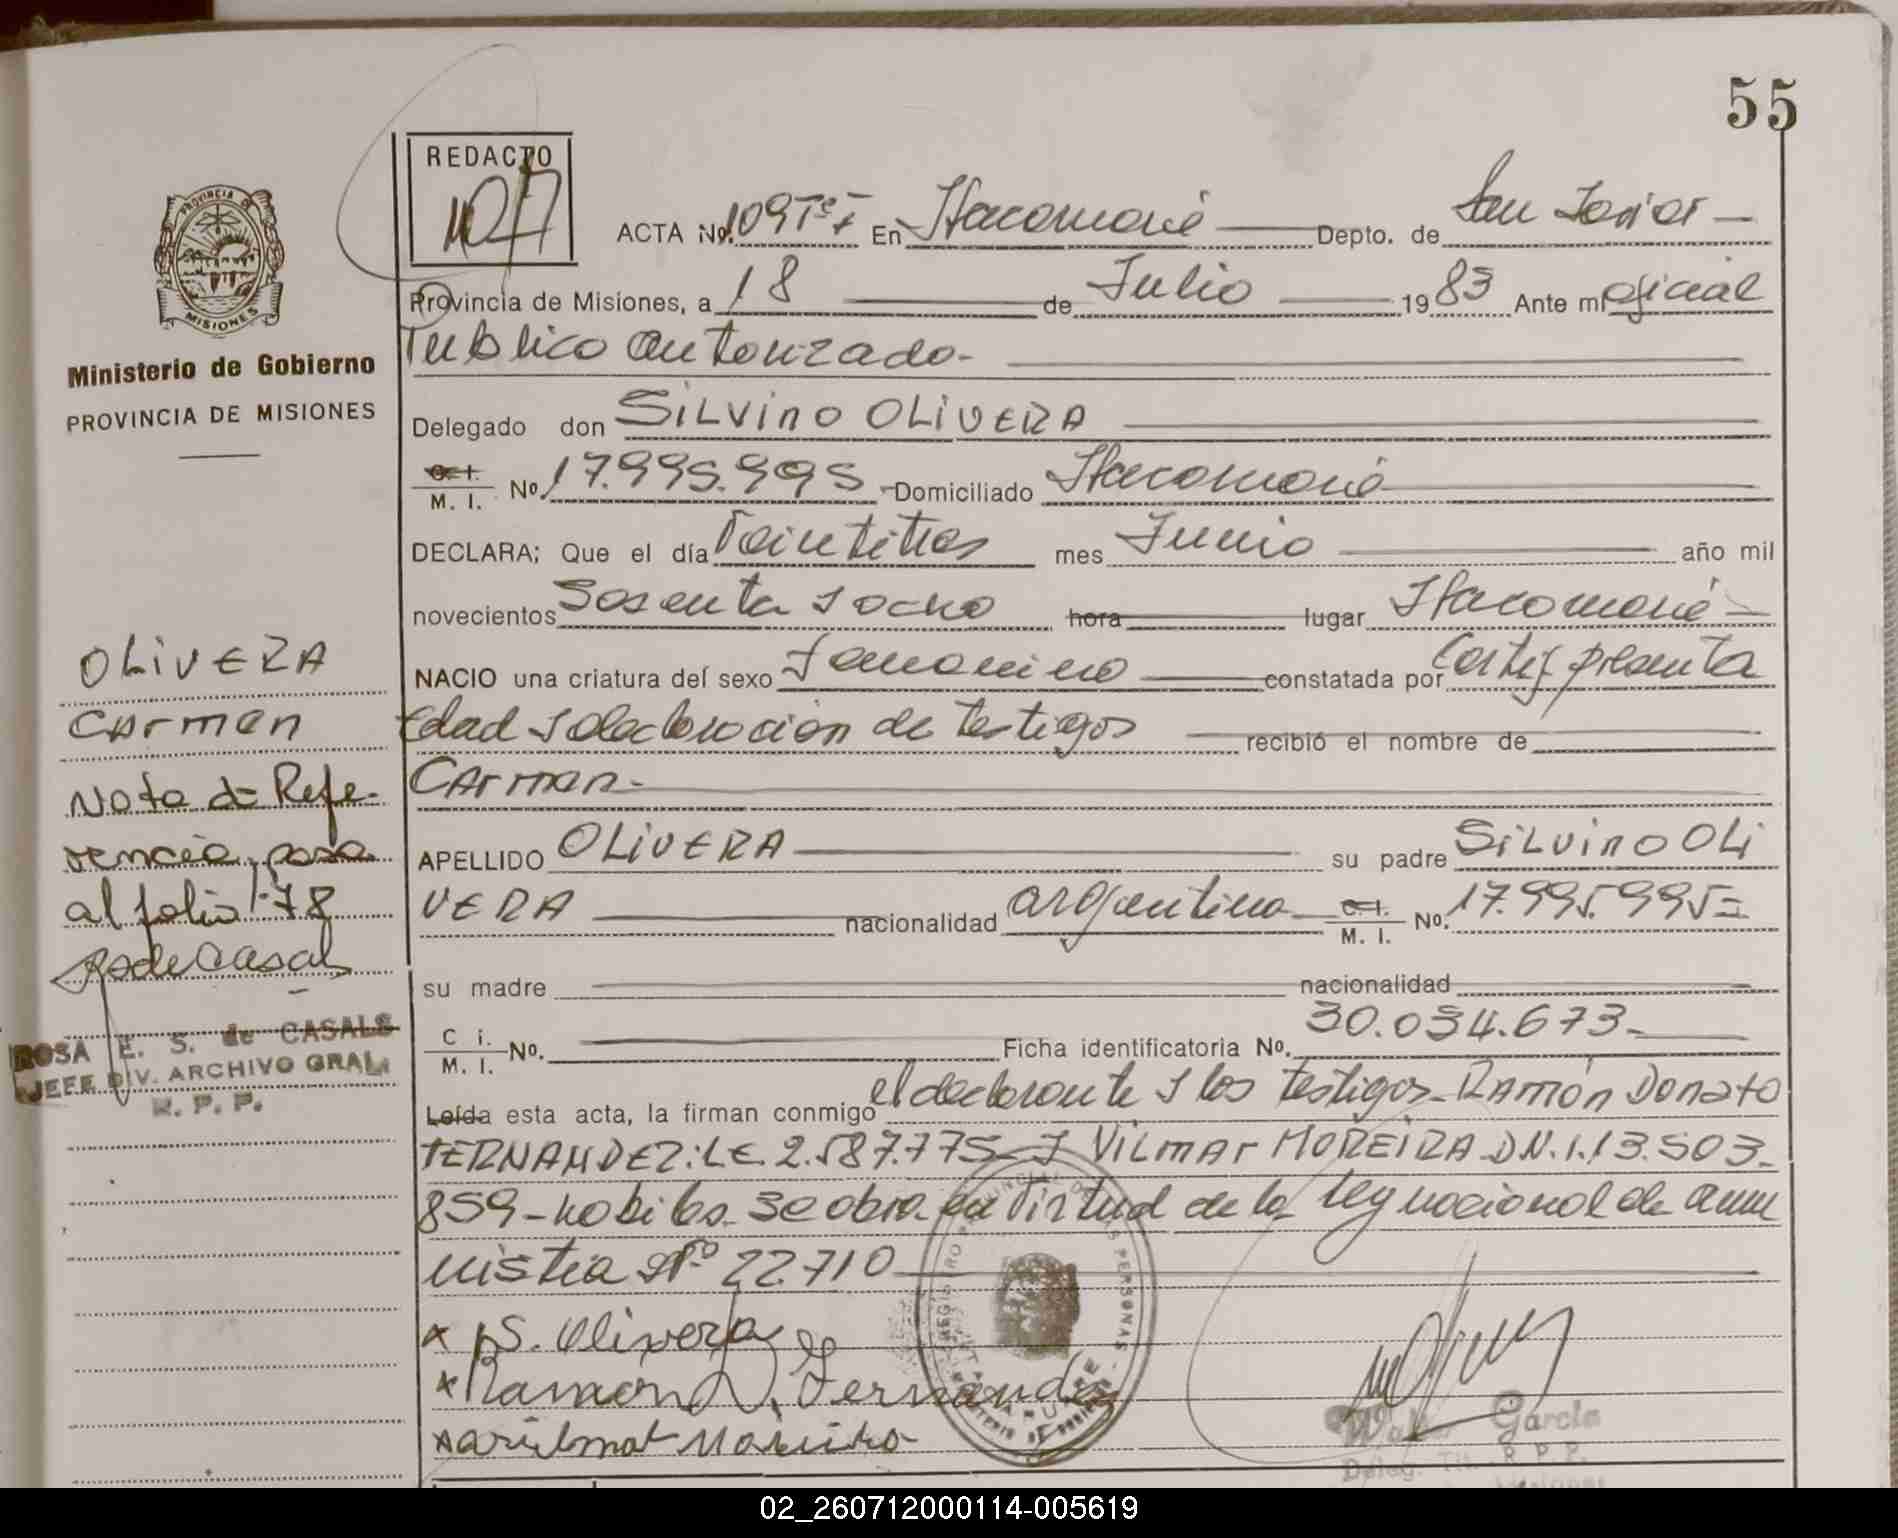 55
REDACTO
PROVINCIA DE
MISIONES
Ministerio de Gobierno
PROVINCIA DE MISIONES
ACTA No. 109 En Itacaruaré Depto. de San Javier
Provincia de Misiones, a 18 de Julio 1983 Ante mi oficial
Publico autorizado
Delegado don SiLVinO OLiVERA
C. I. M. I. No. 17.995.995 Domiciliado Itacaruaré
DECLARA; Que el día Veintitres mes Junio año mil
novecientos Sesenta y ocho hora lugar Itacaruaré
NACIO una criatura del sexo Femenino constatada por Certif presunta
Edad y declaración de testigos recibió el nombre de
CArmen
APELLIDO OLiVERA su padre SiLvinO OLi
VERA nacionalidad argentina C. I. M. I. No. 17.995.995
su madre nacionalidad
C i. M. I. No. Ficha identificatoria No. 30.034.673
Leída esta acta, la firman conmigo el declarante y los testigos RAmón DonAto
FERNANDEZ: L.E. 2.587.775 y ViLmAr MOREiRA D.N.i. 13.503.
859 - habiles Se obra en Virtud de la ley nacional de amn
nistia Nº 22.710
x S. Olivera
x Ramon D. Fernandez
OLiVERA
CArmen
Nota de Refe-
rencia, pasa
al folio 178
R S de Casals
ROSA E. S. de CASALS
JEFE DIV. ARCHIVO GRAL.
R. P. P.
García
Deleg. Tit. R.P.P.
Misiones
02_260712000114-005619